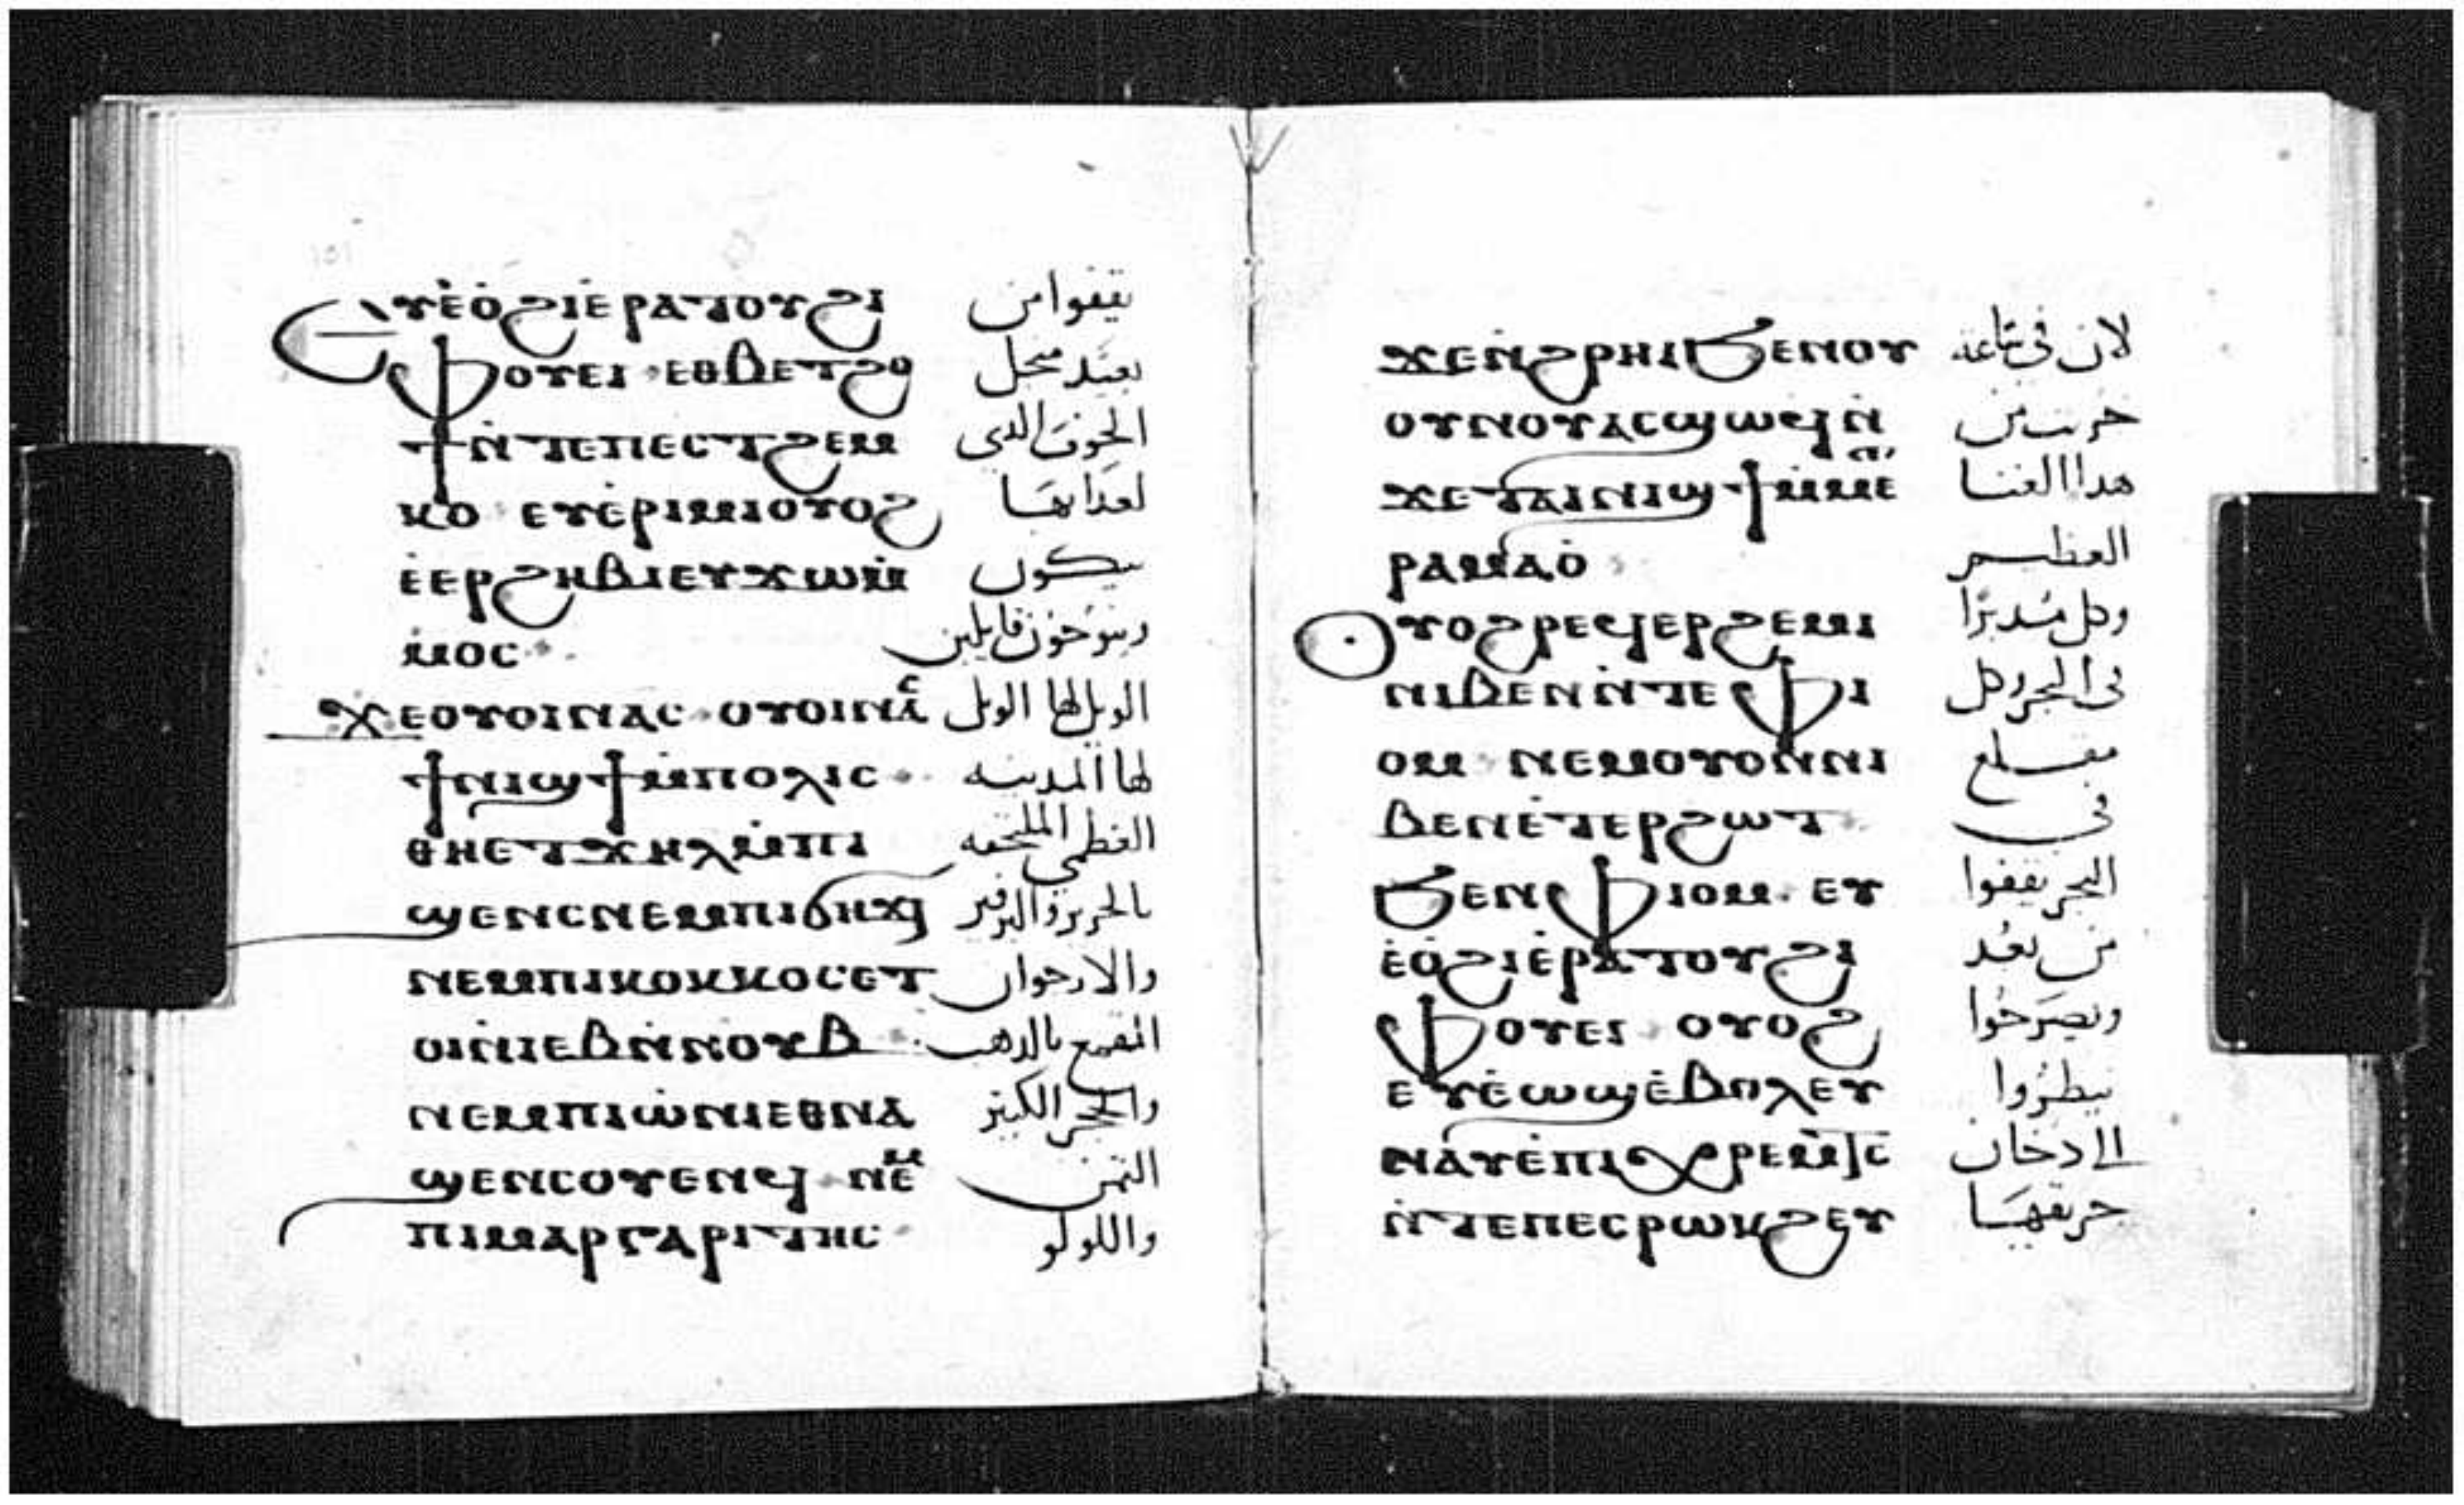 ⲉⲩⲉ̀ⲟ̀ϩⲓⲉ̀ⲣⲁⲧⲟⲩϩⲓ يقفوا من
ⲫⲟⲩⲉⲓ ⲉⲑⲃⲉⲧϩⲟ بعيد من اجل
ϯⲛ̀ⲧⲉⲡⲉⲥⲧϩⲉⲙ الخوف الدى
ⲕⲟ ⲉⲩⲉ̀ⲣⲓⲙⲓⲟⲩⲟϩ لعدابها
ⲉ̀ⲉⲣϩⲏⲃⲓⲉⲩϫⲱⲙ̀ يبكون
ⲙⲟⲥ وينوحون قايلين
ϫⲉⲟⲩⲟⲓⲛⲁⲥ ⲟⲩⲟⲓⲛⲁⲥ الويل لها الويل
ϯⲛⲓϣϯⲙ̀ⲡⲟⲗⲓⲥ لها المدينه
ⲑⲏⲉⲧϫⲏⲗⲙ̀ⲡⲓ العظمى الملتحفه
ϣⲉⲛⲥⲛⲉⲙⲡⲓϭⲏϫⲓ بالحرير والبرفير
ⲛⲉⲙⲡⲓⲕⲟⲕⲕⲟⲥⲉⲧ والارجوان
ⲟⲓⲛ̀ⲓⲉⲃⲛ̀ⲛⲟⲩⲃ المقمع بالدهب
ⲛⲉⲙⲡⲓⲱ̀ⲛⲓⲉⲑⲛⲁ والحجر الكتير
ϣⲉⲛⲥⲟⲩⲉⲛϥ ⲛⲉⲙ التمن
ⲡⲓⲙⲁⲣⲅⲁⲣⲓⲧⲏⲥ واللولو
ϫⲉⲛ̀ϩⲣⲏⲓϧⲉⲛⲟⲩ لان فى ساعة
ⲟⲩⲛⲟⲩⲁⲥϣⲱϥⲛ̀ خربت من
ϫⲉⲧⲁⲓⲛⲓϣϯⲙ̀ⲙⲉⲧ هدا الغنا
ⲣⲁⲙⲁⲟ̀ العظيم
ⲟⲩⲟϩⲣⲉϥⲉⲣϩⲉⲙⲓ وكل مدبرا
ⲛⲓⲃⲉⲛ ⲛ̀ⲧⲉ ⲫⲓ فى البحر وكل
ⲟⲙ ⲛⲉⲙⲟⲩⲟⲛⲛⲓ مقلع
ⲃⲉⲛⲉ̀ⲧⲉⲣϩⲱⲧ فى
ϧⲉⲛⲫⲓⲟⲙ ⲉⲩ البحر يقفوا
ⲉ̀ⲟ̀ϩⲓⲉ̀ⲣⲁⲧⲟⲩϩⲓ من بعد
ⲫⲟⲩⲉⲓ ⲟⲩⲟϩ ويصرخوا
ⲉⲩⲉ̀ⲱϣⲉ̀ⲃⲟⲗⲉⲩ ينظروا
ⲛⲁⲩⲉ̀ⲡⲓⲭⲣⲉⲙⲧⲥ الى دخان
ⲛ̀ⲧⲉⲡⲉⲥⲣⲱⲕϩⲉⲩ حريقها